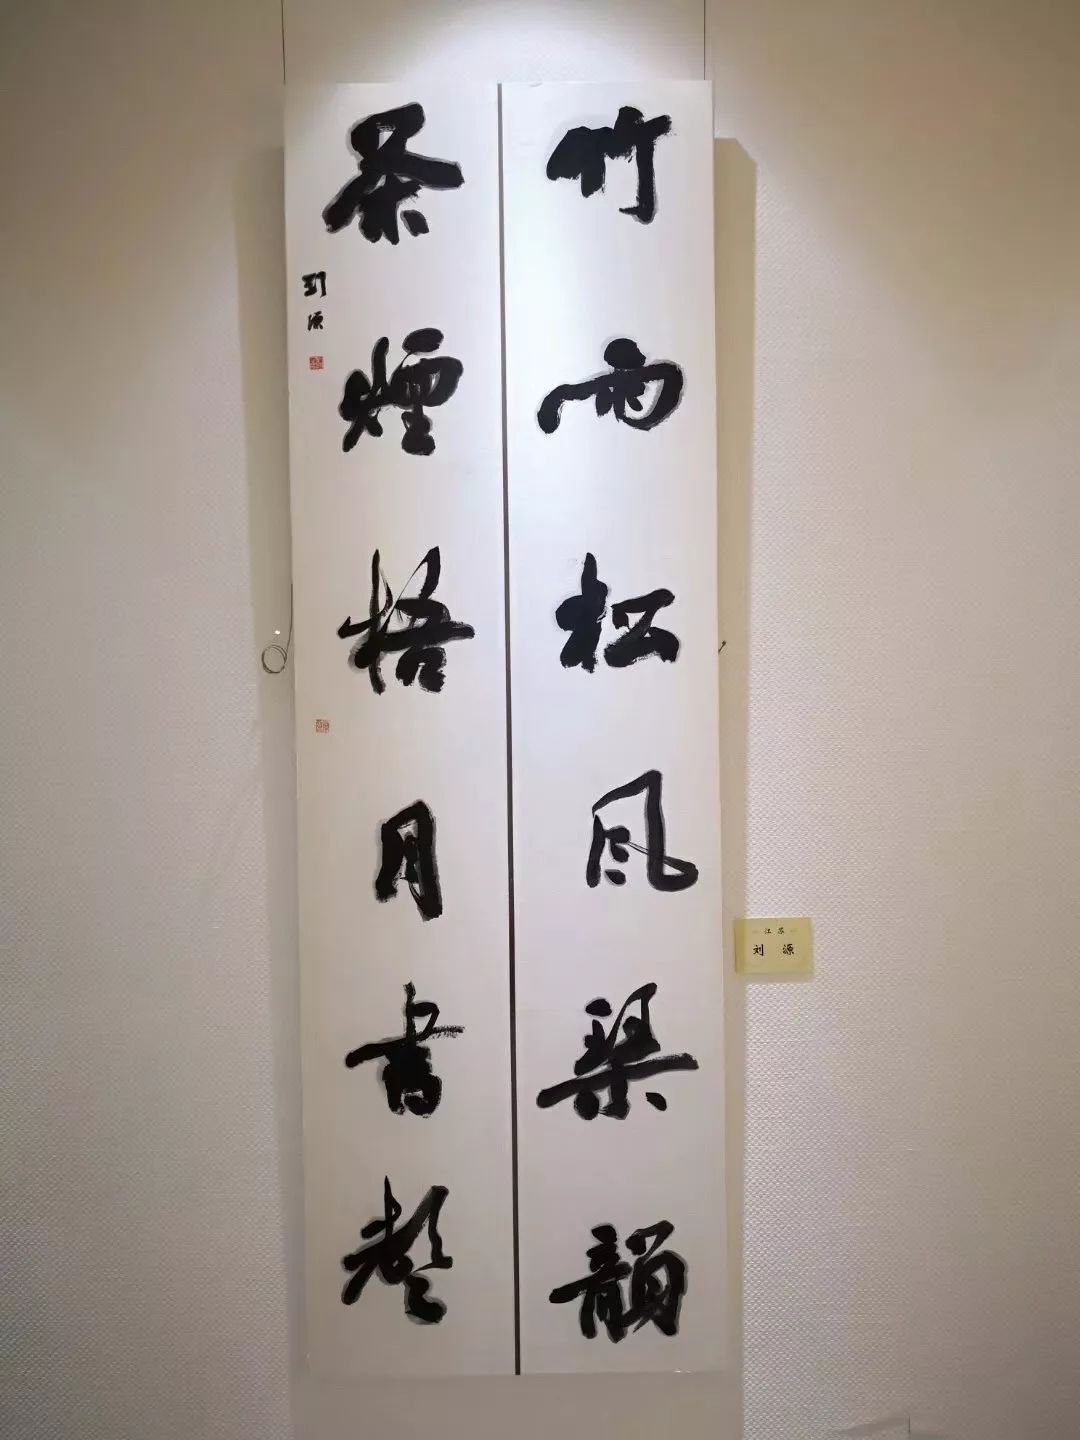 竹雨松風琴韻
茶煙梧月書聲
刘源
江苏
刘源